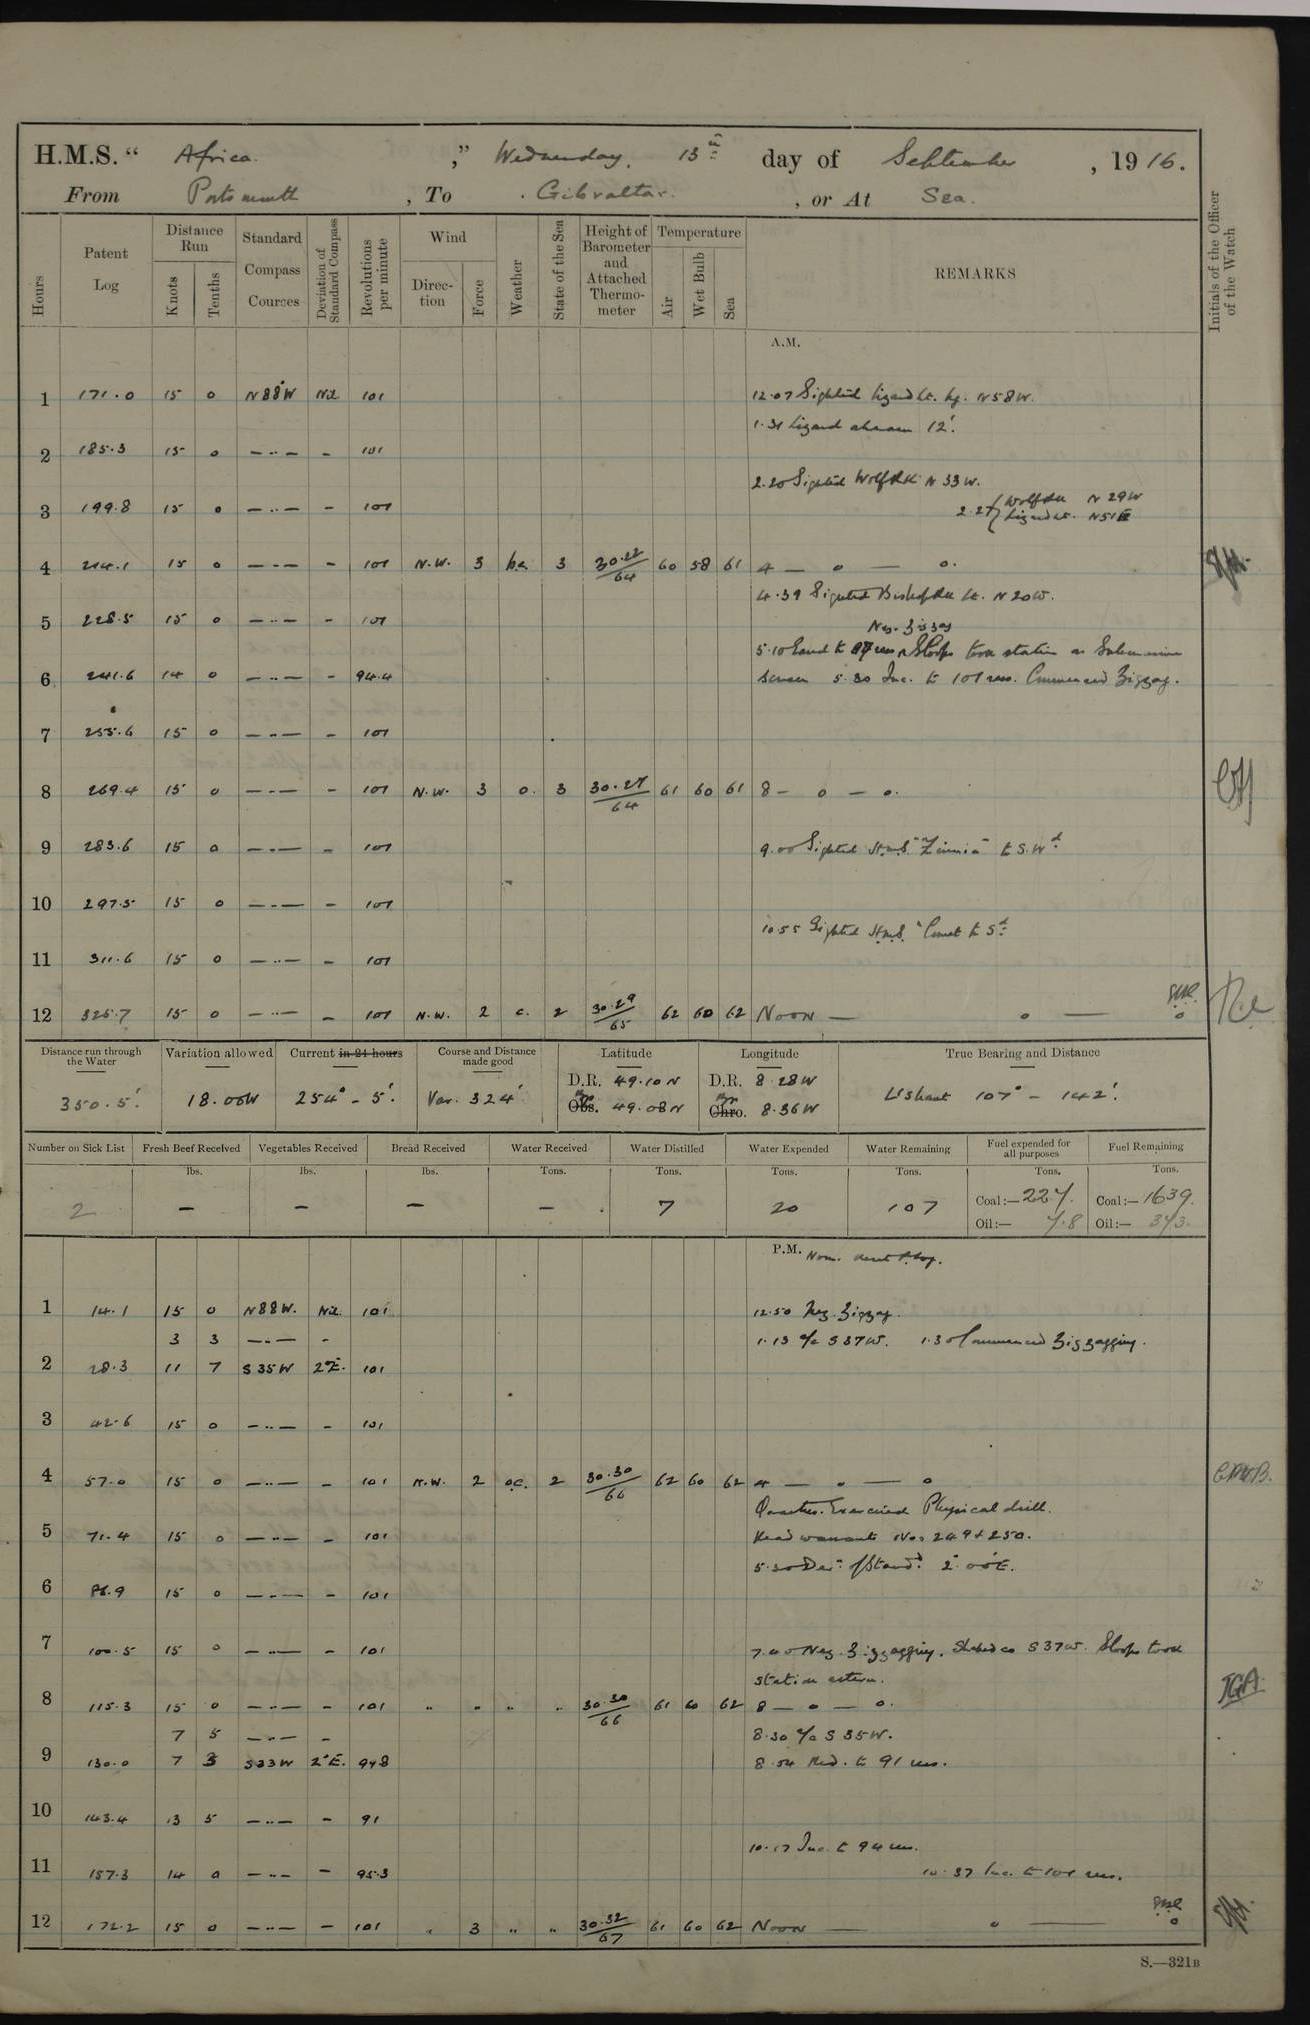 H.M.S. " Africa ," Wednesday, 13th day of September , 1916.
From Portsmouth , To Gibraltar. , or At Sea.
Hours
Patent Log
Distance Run
Knots
Tenths
Standard Compass Courses
Deviation of Standard Compass
Revolutions per minute
Wind
Direction
Force
Weather
State of the Sea
Height of Barometer and Attached Thermometer
Temperature
Air
Wet Bulb
Sea
REMARKS
Initials of the Officer of the Watch
A.M.
1 171.0 15 0 N88W Nil 101 12.07 Sighted Lizard Lt. bg. N58W.
1.31 Lizard abeam 12'.
2 185.3 15 0 — .. — - 101
2.20 Sighted Wolf Rk N 33 W.
3 199.8 15 0 — .. — - 101 2.27 { Wolf Rk N 29W
Lizard Lt. N51E
4 214.1 15 0 — .. — - 101 N.W. 3 bc 3 30.22/64 60 58 61 4 — o — o.
4.39 Sighted Bishop Rk Lt. N20W.
5 228.5 15 0 — .. — - 101
Neg. Zigzag
5.10 to revs Sloops took station as Submarine
6 241.6 14 0 — .. — - 94.4 Screen 5.30 Inc. to 101 revs. Commenced Zigzag.
7 255.6 15 0 — .. — - 101
8 269.4 15 0 — .. — - 101 N.W. 3 o. 3 30.27/64 61 60 61 8 - o — o.
9 283.6 15 0 — .. — - 101 9.00 Sighted H.M.S. "Zinnia" to S.Wd
10 297.5 15 0 — .. — - 101
10.55 Sighted H.M.S. "Comet to Sd
11 311.6 15 0 — .. — - 101
12 325.7 15 0 — .. — - 101 N.W. 2 c. 2 30.29/65 62 60 62 Noon — o —
Distance run through the Water
350.5'.
Variation allowed
18.00W
Current in 24 hours
254° - 5'.
Course and Distance made good
Var. 324'
Latitude
D.R. 49.10N
Obs. 49.08N
Longitude
D.R. 8.28W
Chro. 8.36W
True Bearing and Distance
Ushant 107° - 142'.
Number on Sick List
2
Fresh Beef Received
lbs.
-
Vegetables Received
lbs.
-
Bread Received
lbs.
-
Water Received
Tons.
-
Water Distilled
Tons.
7
Water Expended
Tons.
20
Water Remaining
Tons.
107
Fuel expended for all purposes
Tons.
Coal:— 227.
Oil:— 7.8
Fuel Remaining
Tons.
Coal:— 1639.
Oil:— 373.
P.M.
1 14.1 15 0 N88W. Nil 101 12.50 Neg. Zigzag.
3 3 — .. — - 1.13 a/c S37W. 1.30 Commenced Zigzagging.
2 28.3 11 7 S35W 2°E. 101
3 42.6 15 0 — .. — - 101
4 57.0 15 0 — .. — - 101 N.W. 2 oc. 2 30.30/66 62 60 62 4 — o — o
Quarters. Exercised Physical drill.
5 71.4 15 0 — .. — - 101 Read warrants Nos 249 & 250.
5.30 Devn of Stand. 2°.00'E.
6 86.9 15 0 — .. — - 101
7 100.5 15 0 — .. — - 101 7.00 Neg. Zigzagging. S37W. Sloops took
station astern.
8 115.3 15 0 — .. — - 101 " " " " 30.30/66 61 60 62 8 — o — o.
7 5 — .. — - 8.30 a/c S35W.
9 130.0 7 3 S33W 2°E. 97.8 8.54 Red. to 91 revs.
10 143.4 13 5 — .. — - 91
10.17 Inc. to 94 revs.
11 157.3 14 0 — .. — - 95.3 10.37 Inc. to 101 revs.
12 172.2 15 0 — .. — - 101 " 3 " " 30.32/67 61 60 62 Noon — o —
S.—321B